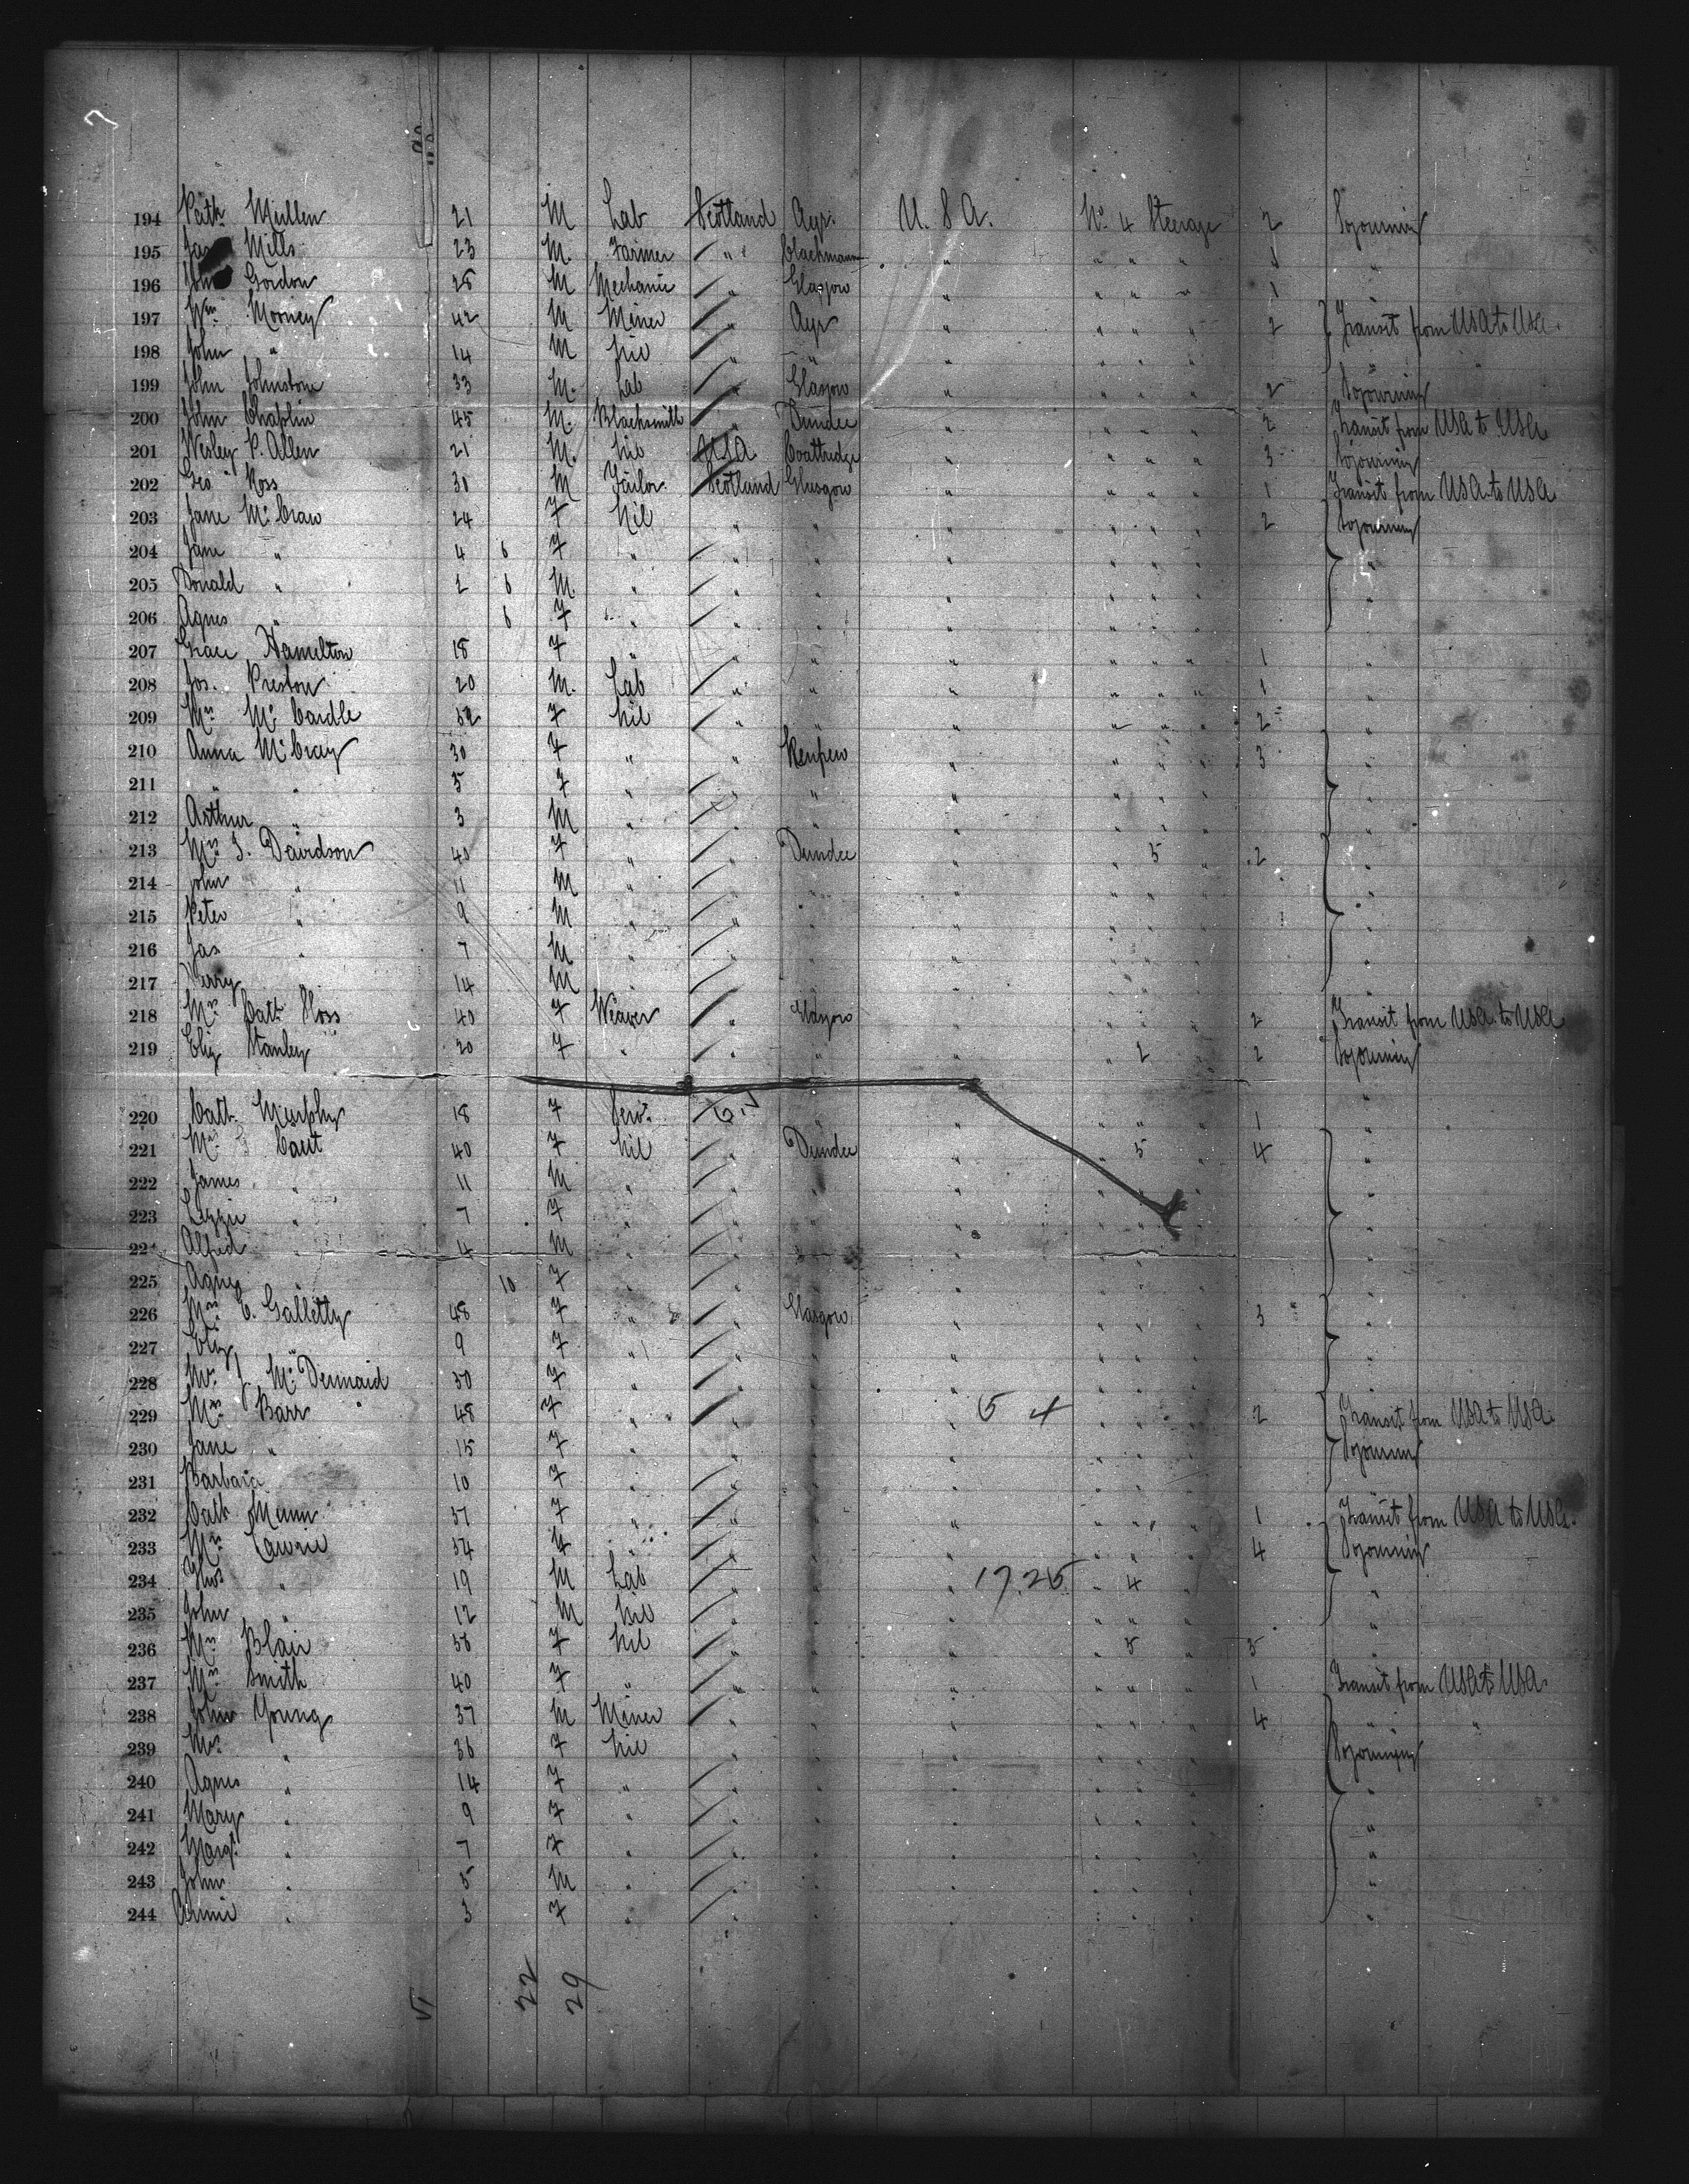 194 Path. Mullen 21 M Lab Scotland Ayr. U. S A. No. 4 Steerage 2 Sojourning
195 Jas Mills 23 M. Farmer " " Clackmann " " " " 1 "
196 John Gordon 28 M Mechanic " Glasgow " " " " 1 "
197 Wm. Mooney 42 M Miner " Ayr " " " " 2 Transit from USA to USA.
198 John " 14 M Nil " " " " " " " "
199 John Johnstone 33 M. Lab " Glasgow " " " " 2 Sojourning
200 John Chaplin 45 M. Blacksmith " Dundee " " " " 2 Transit from USA to USA
201 Wesley P. Allen 21 M. Nil USA Coatbridge " " " " 3 Sojourning
202 Geo Ross 30 M Tailor Scotland Glasgow " " " " 1 Transit from USA to USA
203 Jane McCraw 24 F Nil " " " " " " 2 Sojourning
204 Jane " 4 6 F " " " " " " " "
205 Donald " 2 6 M. " " " " " " " "
206 Agnes " 6 F " " " " " " " "
207 Grace Hamilton 18 F " " " " " " 1 "
208 Jos. Preston 20 M. Lab " " " " " " 1 "
209 Mrs McCardle 32 F Nil " " " " " " 2 "
210 Anna McCray 30 F " " Renfrew " " " " 3 "
211 " " 5 F " " " " " " " "
212 Arthur " 3 M " " " " " " " "
213 Mrs J. Davidson 40 F " " Dundee " " 5 " 2 "
214 John " 11 M " " " " " " " "
215 Peter " 9 M " " " " " " " "
216 Jas " 7 M " " " " " " " "
217 14 M " " " " " " " "
218 Mrs Cath. 40 F Weaver " Glasgow " " " " 2 Transit from USA to USA
219 Eliz Stanley 20 F " " " " " 2 " 2 Sojourning
220 Cath. Murphy 18 F Serv. " " " " " " 1 "
221 Mrs 40 F Nil " Dundee " " 5 " 4 "
222 James " 11 M " " " " " " " "
223 Lizzie " 7 F " " " " " " " "
224 Alfred " 4 M " " " " " " " "
225 Agnes " 10 F " " " " " " " "
226 Mrs C. Galletly 48 F " " Glasgow " " " " 3 "
227 Eliz " 9 F " " " " " " " "
228 Mrs J. McDermaid 30 F " " " " " " " "
229 Mrs Barr 48 F " " " " 5 4 " " " 2 Transit from USA to USA.
230 Jane " 15 F " " " " " " " Sojourning
231 Barbara 10 F " " " " " " "
232 Cath Mann 37 F " " " " " " " 1 Transit from USA to USA.
233 Mrs Lawrie 54 " " " " " " " 4 Sojourning
234 Thos " 19 M Lab " " " 17.25 " 4 " "
235 John " 12 M Nil " " " " " " "
236 Mrs Blair 38 F Nil " " " " 5 " 5 "
237 Mrs Smith 40 F " " " " " " " 1 Transit from USA to USA.
238 John Young 37 M Miner " " " " " " 4 " "
239 Mrs " 36 F Nil " " " " " " Sojourning
240 Agnes " 14 F " " " " " " " "
241 Mary " 9 F " " " " " " " "
242 Margt. " 7 F " " " " " " " "
243 John " 5 M " " " " " " " "
244 Annie " 3 F " " " " " " " "
22
29